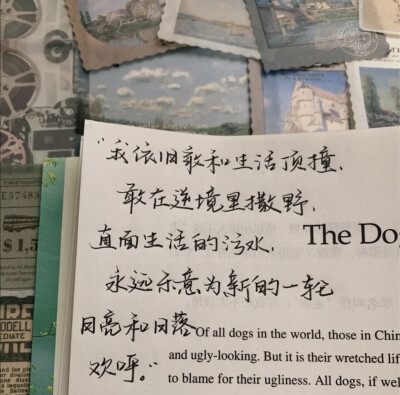 "我依旧敢和生活顶撞,
敢在逆境里撒野,
直面生活的污水,
The Do
永远乐意为新的一轮
月亮和日落
欢呼。"
Of all dogs in the world, those in Chin
and ugly-looking. But it is their wretched lif
to blame for their ugliness. All dogs, if wel
$1.5